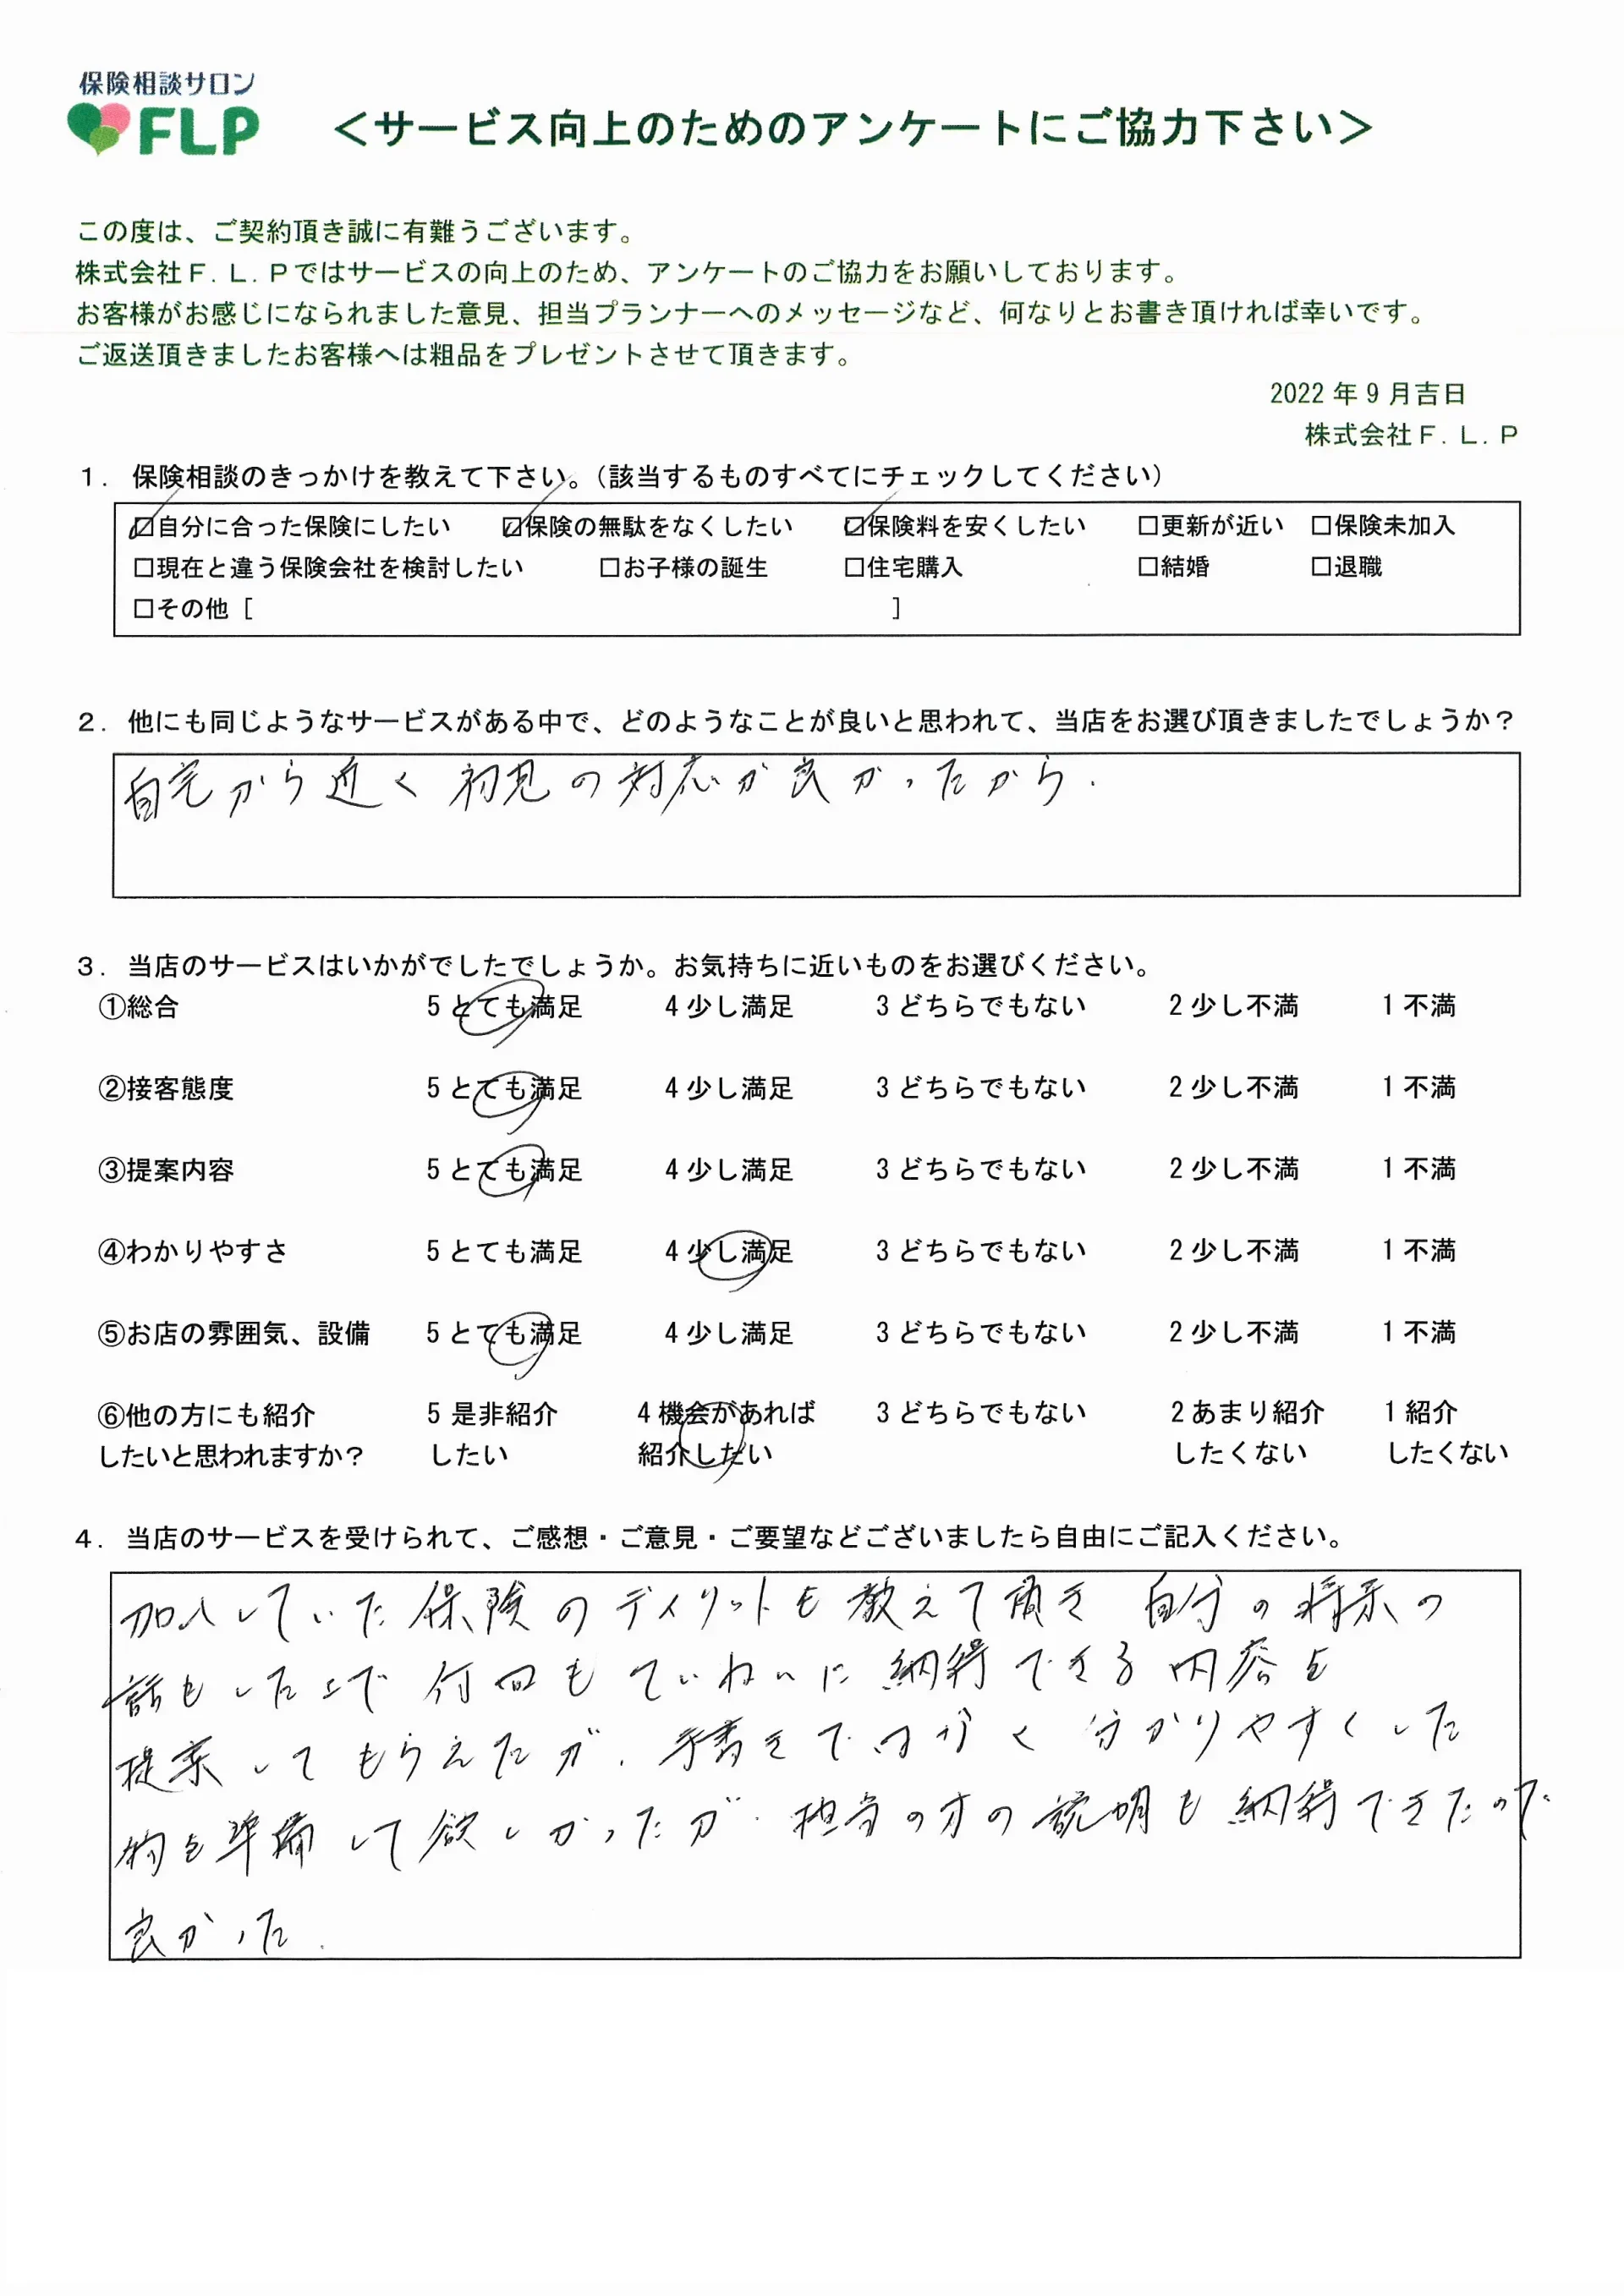 保険相談サロン
FLP
＜サービス向上のためのアンケートにご協力下さい＞
この度は、ご契約頂き誠に有難うございます。
株式会社Ｆ．Ｌ．Ｐではサービスの向上のため、アンケートのご協力をお願いしております。
お客様がお感じになられました意見、担当プランナーへのメッセージなど、何なりとお書き頂ければ幸いです。
ご返送頂きましたお客様へは粗品をプレゼントさせて頂きます。
2022 年 9 月吉日
株式会社Ｆ．Ｌ．Ｐ
１．保険相談のきっかけを教えて下さい。（該当するものすべてにチェックしてください）
☑自分に合った保険にしたい ☑保険の無駄をなくしたい ☑保険料を安くしたい □更新が近い □保険未加入
□現在と違う保険会社を検討したい □お子様の誕生 □住宅購入 □結婚 □退職
□その他［ ］
２．他にも同じようなサービスがある中で、どのようなことが良いと思われて、当店をお選び頂きましたでしょうか？
自宅から近く初見の対応が良かったから.
３．当店のサービスはいかがでしたでしょうか。お気持ちに近いものをお選びください。
①総合 5 とても満足 4 少し満足 3 どちらでもない 2 少し不満 1 不満
②接客態度 5 とても満足 4 少し満足 3 どちらでもない 2 少し不満 1 不満
③提案内容 5 とても満足 4 少し満足 3 どちらでもない 2 少し不満 1 不満
④わかりやすさ 5 とても満足 4 少し満足 3 どちらでもない 2 少し不満 1 不満
⑤お店の雰囲気、設備 5 とても満足 4 少し満足 3 どちらでもない 2 少し不満 1 不満
⑥他の方にも紹介 5 是非紹介 4 機会があれば 3 どちらでもない 2 あまり紹介 1 紹介
したいと思われますか？ したい 紹介したい したくない したくない
４．当店のサービスを受けられて、ご感想・ご意見・ご要望などございましたら自由にご記入ください。
加入していた保険のディリットも教えて頂き 自分の将来の
話もした上で何回もていねいに納得できる内容を
提案してもらえたが. 手書きではなく分かりやすくした
物を準備して欲しかったが. 担当の方の説明も納得できたので
良かった.